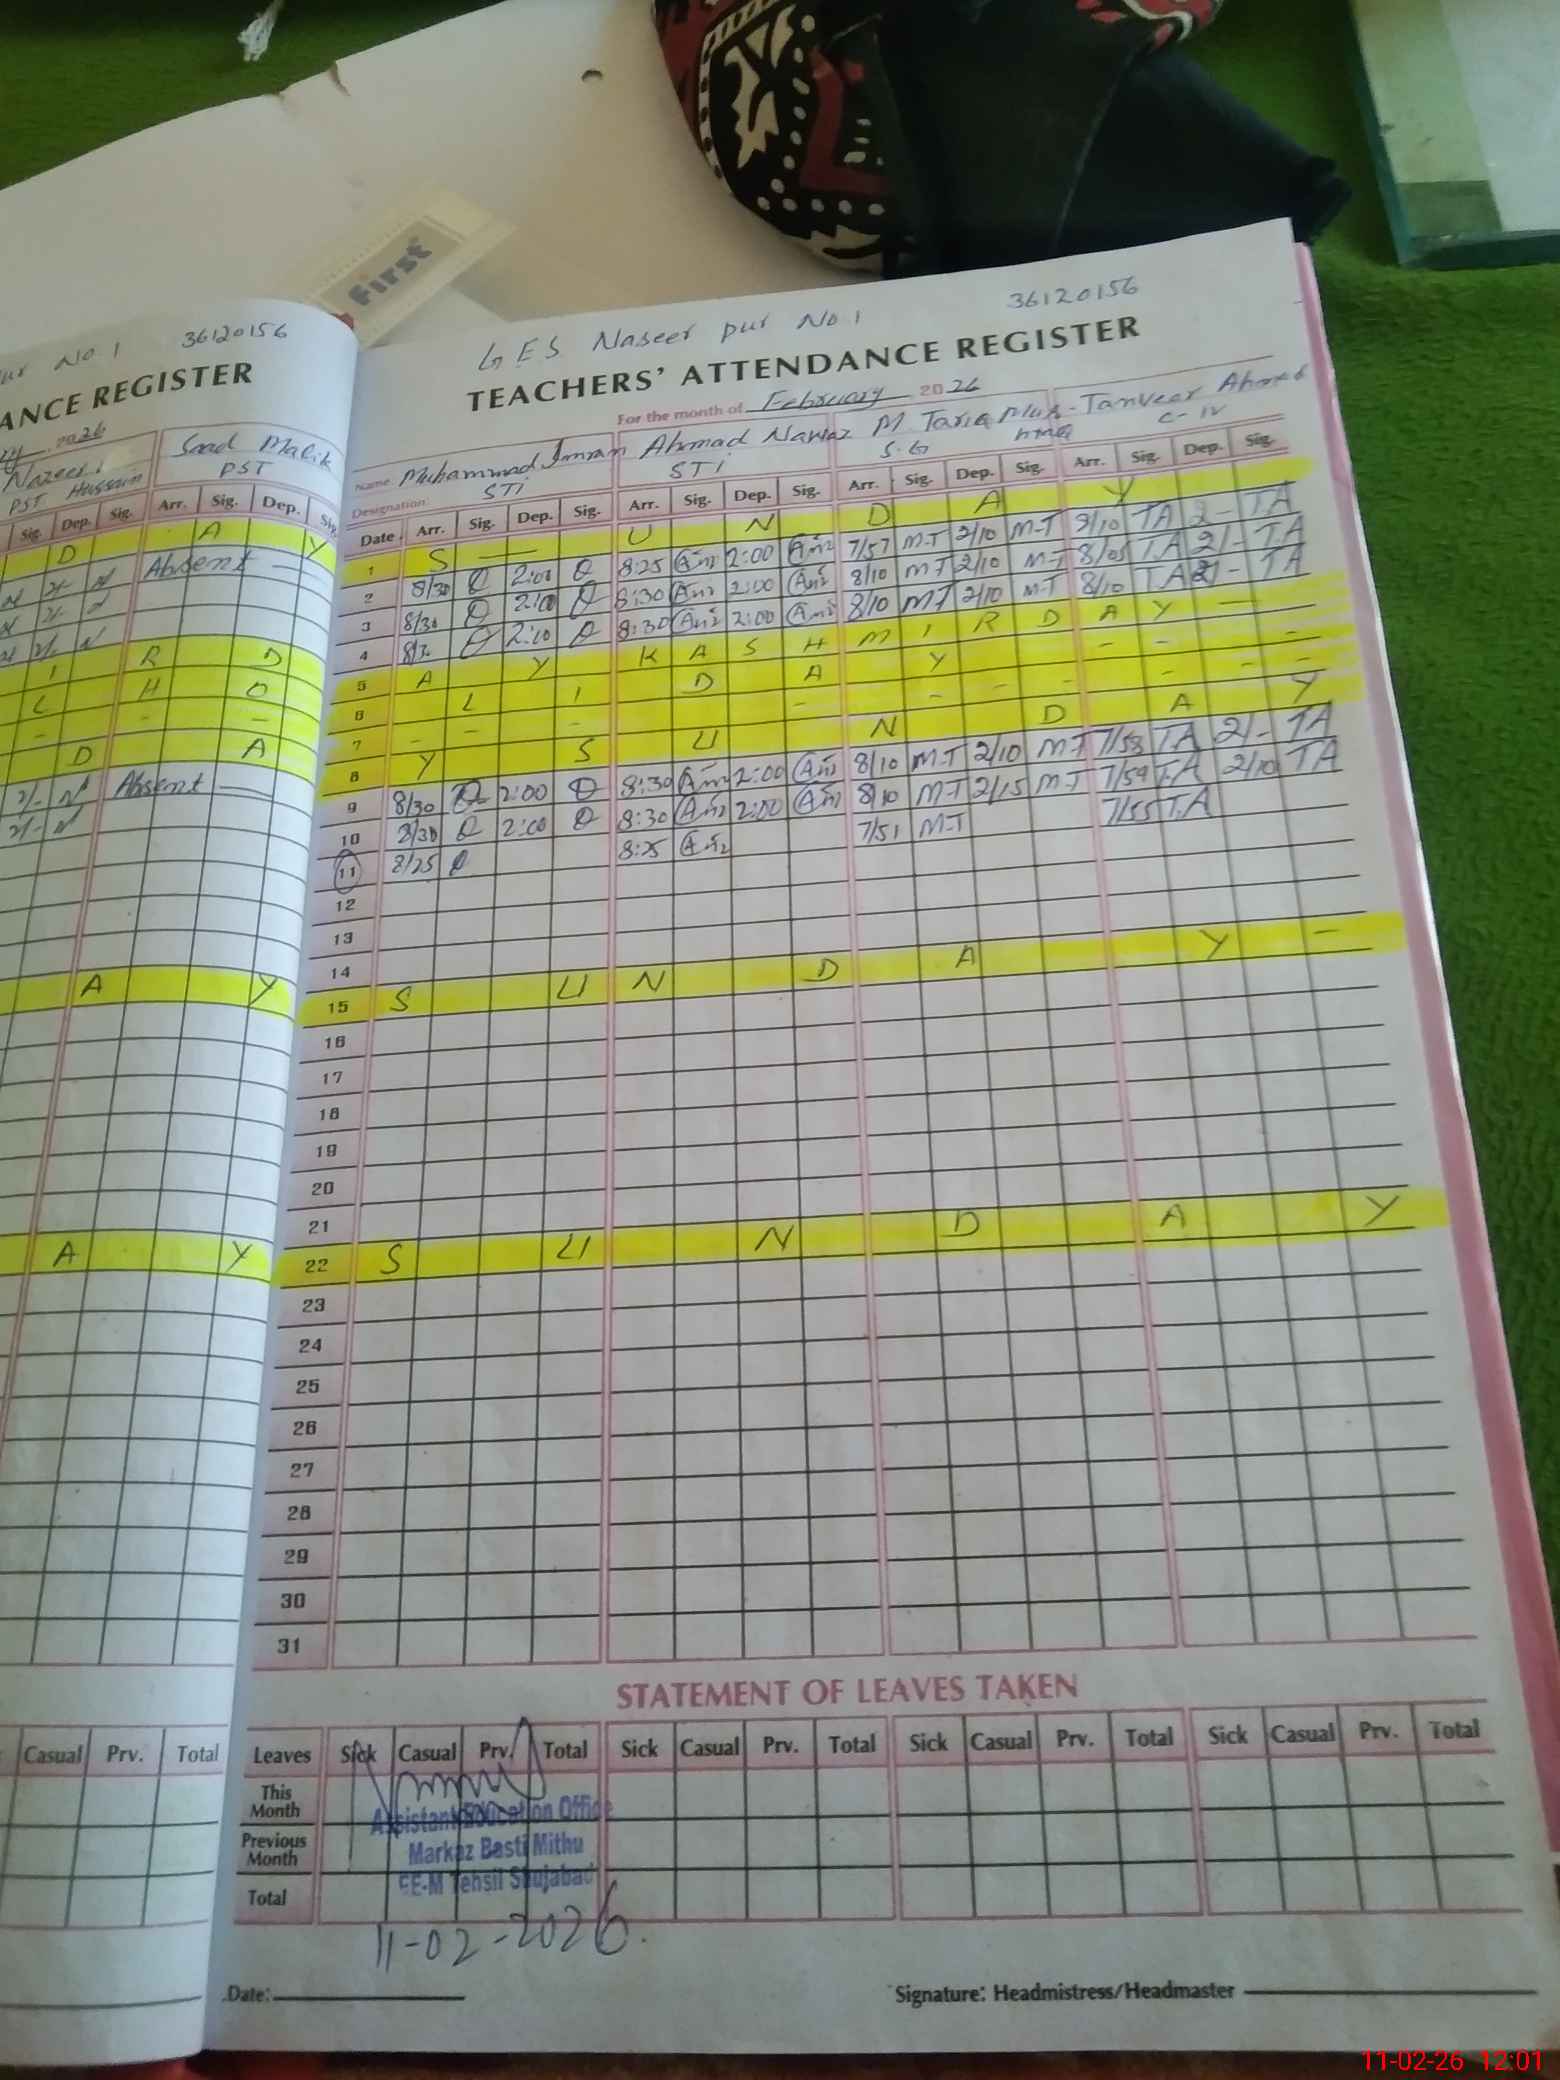 First
No 1 36120156
ANCE REGISTER
2026
Nazeer Saad Malik
PST Hussain PST
Sig. Dep. Sig. Arr. Sig. Dep.
D A Y
Absent
I R D
L H O
D A
Absent
A Y
A Y
Casual Prv. Total
GES Naseer pur No 1 36120156
TEACHERS' ATTENDANCE REGISTER
For the month of February 2026
Name Muhammad Imran Ahmad Nawaz M Tariq Tanveer Ahmad
Designation STI STI S.G C-IV
Date Arr. Sig. Dep. Sig. Arr. Sig. Dep. Sig. Arr. Sig. Dep. Sig. Arr. Sig. Dep. Sig.
1 S U N D A Y
2 8/30 2:00 8:25 2:00 7/57 M-T 2/10 M-T 8/10 TA 2- TA
3 8/30 2:00 8:30 2:00 8/10 M-T 2/10 M-T 8/05 TA 2/- TA
4 8/30 2:00 8:30 2:00 8/10 MT 2/10 M-T 8/10 TA 2/- TA
5 A Y K A S H M I R D A Y -
6 L I D A Y - -
7 - - - - - - - - - -
8 Y S U N D A Y
9 8/30 2:00 8:30 2:00 8/10 M-T 2/10 M-T 7/58 TA 2/- TA
10 8/30 2:00 8:30 2:00 8/10 M-T 2/15 M-T 7/59 TA 2/10 TA
11 8/25 8:25 7/51 M-T 7/55 TA
12
13
14
15 S U N D A Y -
16
17
18
19
20
21
22 S U N D A Y
23
24
25
26
27
28
29
30
31
STATEMENT OF LEAVES TAKEN
Leaves Sick Casual Prv. Total Sick Casual Prv. Total Sick Casual Prv. Total Sick Casual Prv. Total
This Month
Previous Month
Total
Assistant Education Office
Markaz Basti Mithu
EE-M Tehsil Shujabad
11-02-2026.
Date:
Signature: Headmistress/Headmaster
11-02-26 12:01